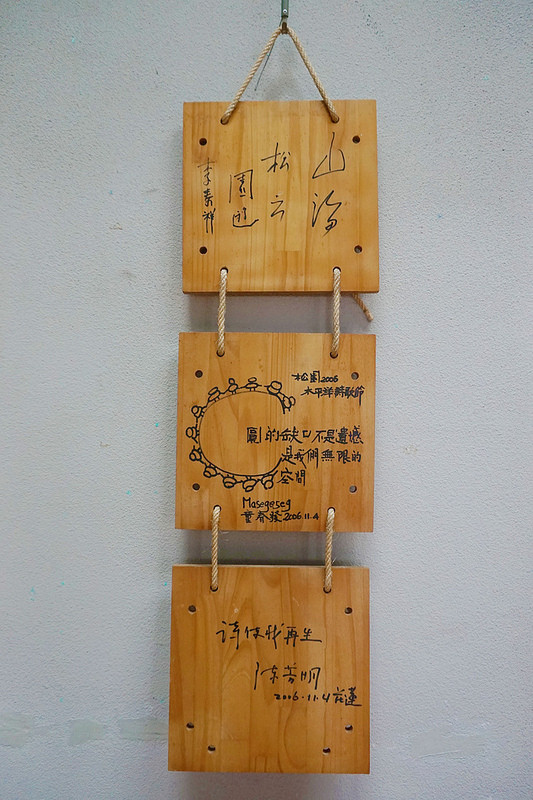 山海
松云
園遊
李泰祥
松園2006
太平洋詩歌節
圓的缺口不是遺憾
是我們無限的
空間
Masegeseg
童春發2006.11.4
詩使我再生
陳芳明
2006.11.4花蓮